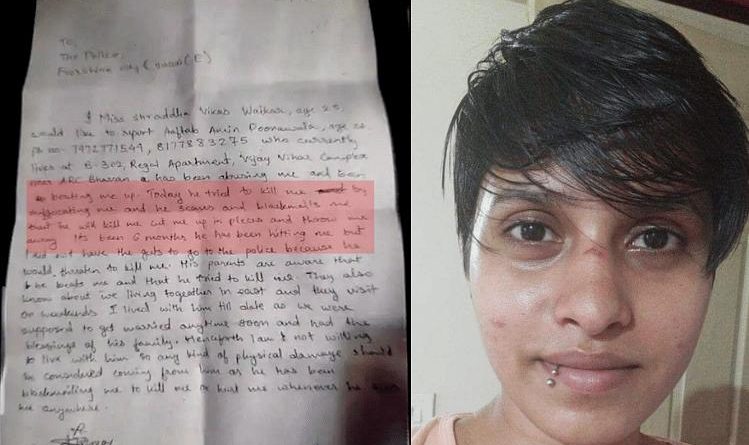 To,
The Police,
I Miss Shraddha Vikas Walkar, age 25
would like to report Aaftab Amin Poonawala, age 26
ph no- 7972771549, 8177883275 who currently
lives at B-302, Regal Apartment, Vijay Vihar Complex
near ARC Bhavan a has been abusing me and been
beating me up. Today he tried to kill me by
suffocating me and he scares and blackmails me
that he will kill me, cut me up in pieces and throw me
away. Its been 6 months he has been hitting me but
I did not have the guts to go to the police because he
would threaten to kill me. His parents are aware that
he beats me and that he tried to kill me. They also
know about we living together in and they visit
on weekends. I lived with him till date as we were
supposed to get married anytime soon and had the
blessings of his family. Henceforth I am not willing
to live with him so any kind of physical damage should
be considered coming from him as he has been
blackmailing me to kill me or hurt me whenever he
me anywhere.